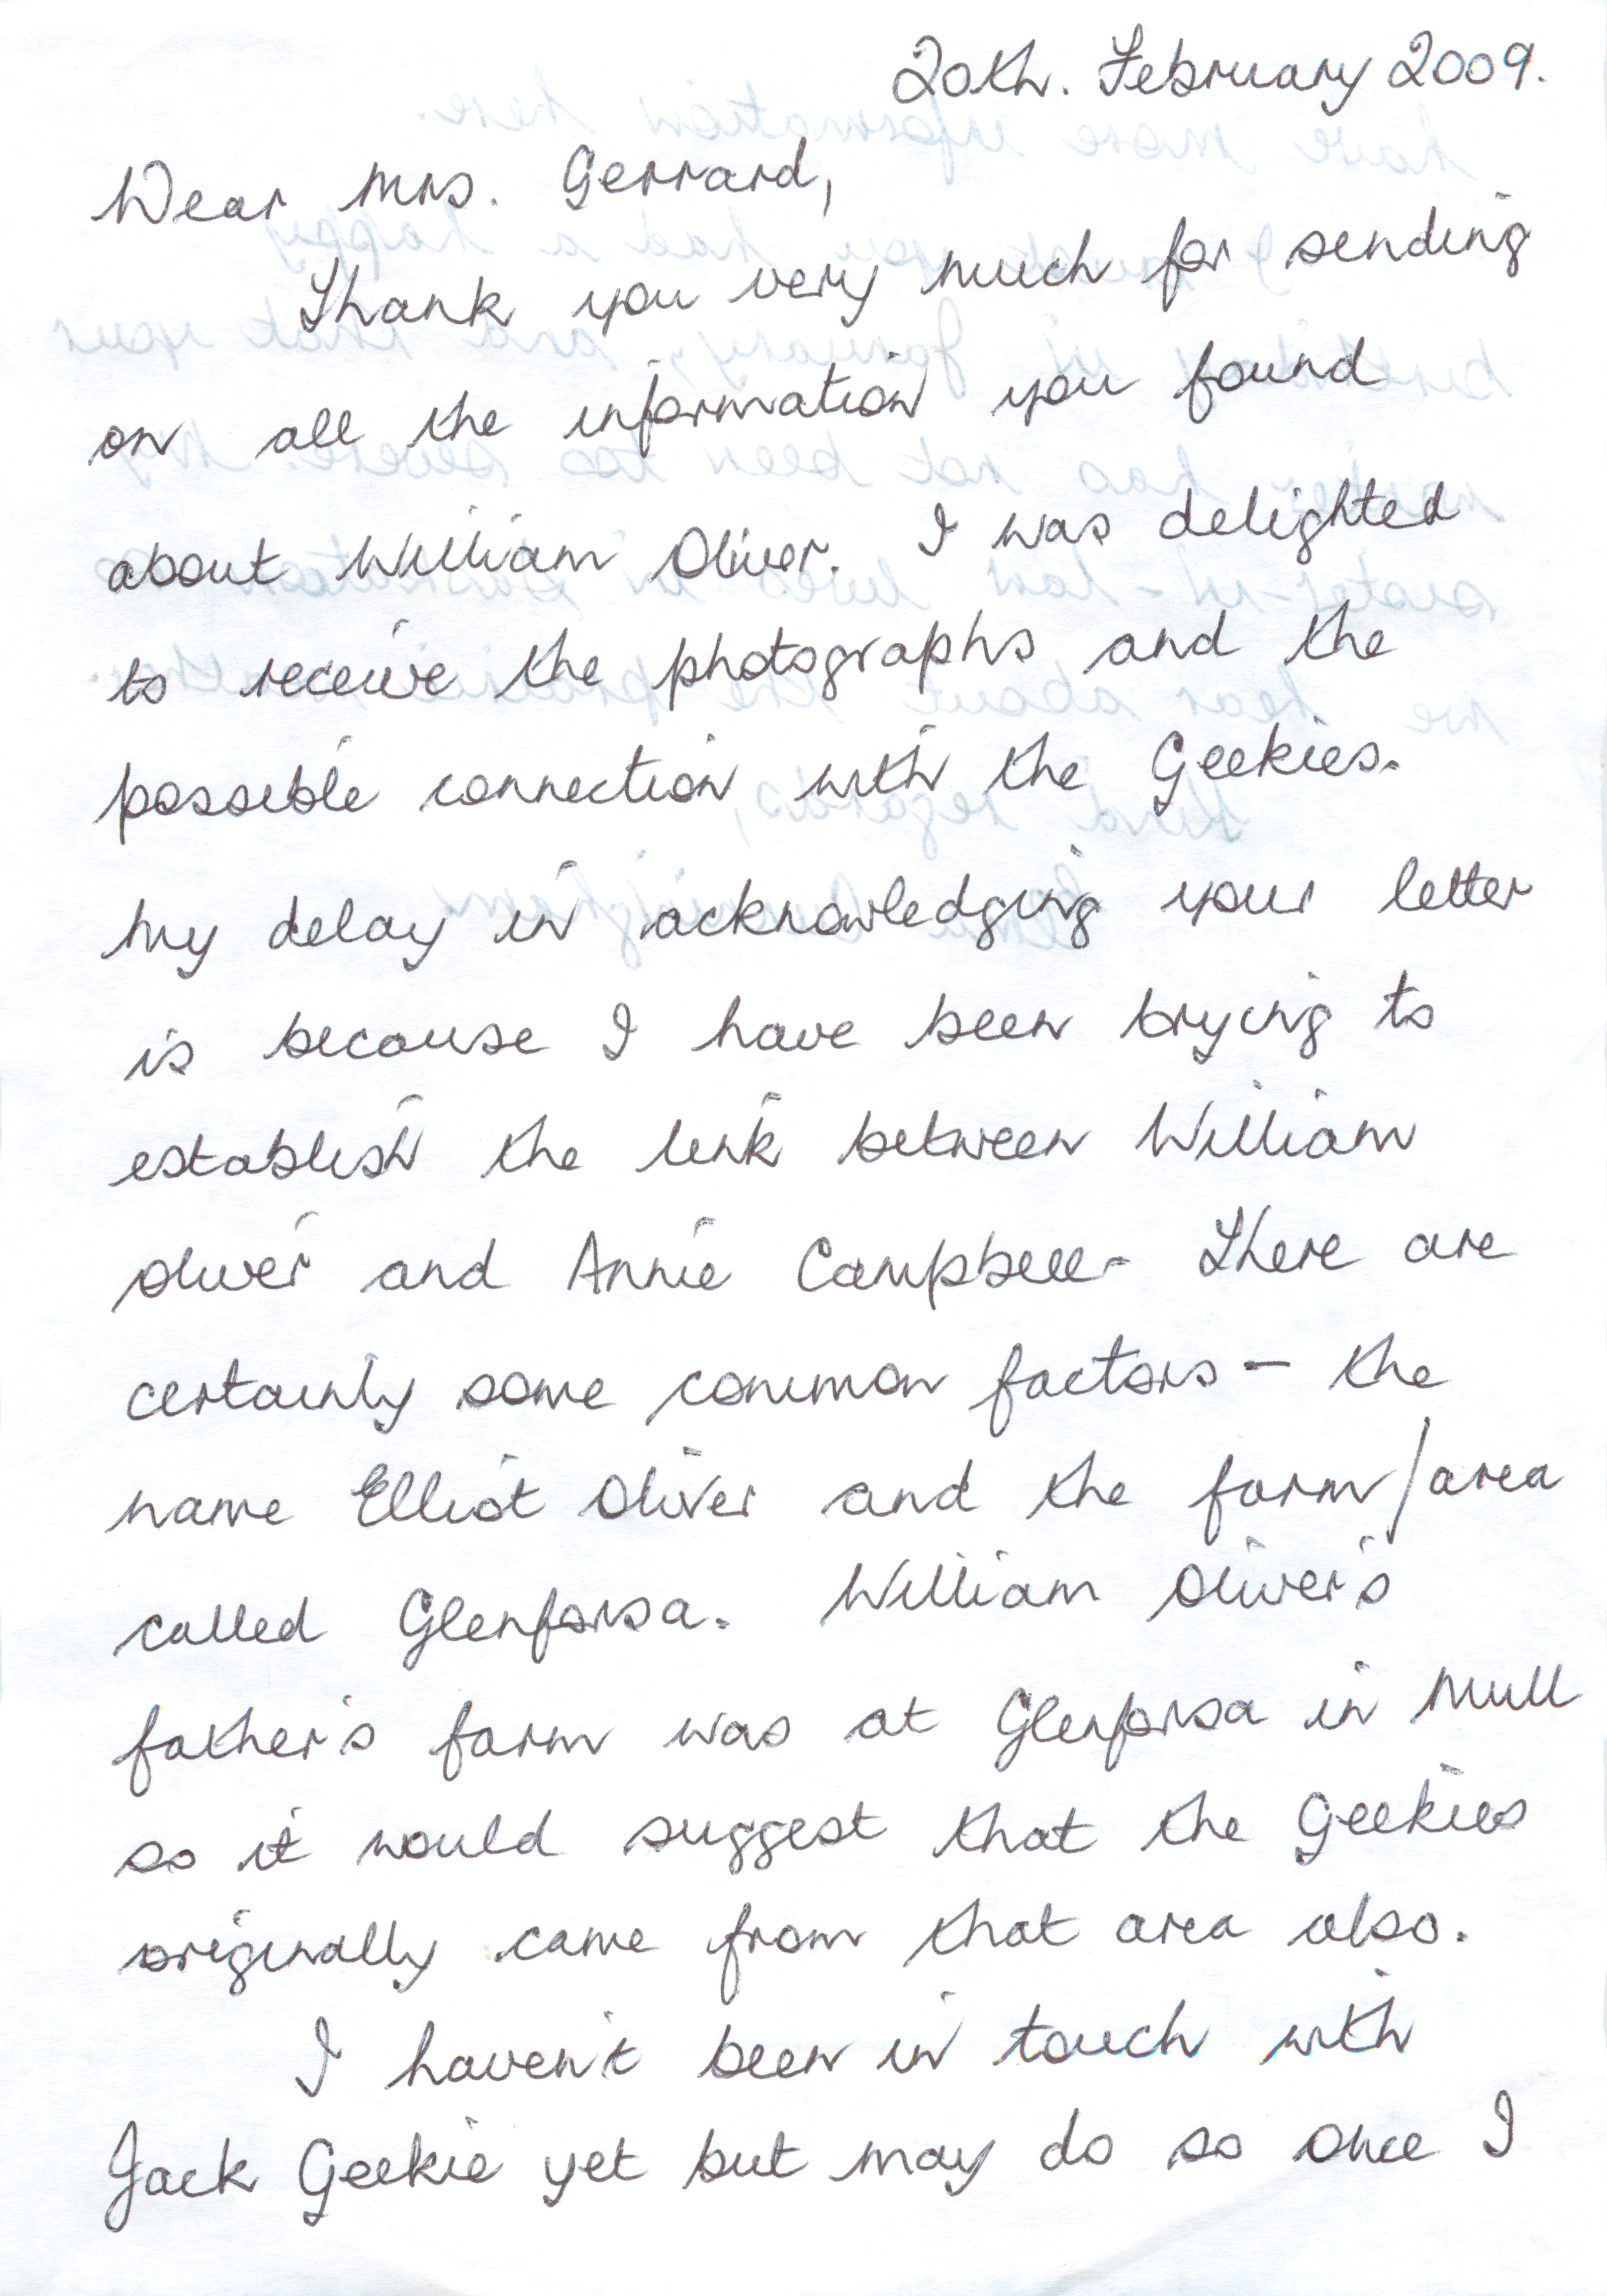 20th. February 2009.
Dear Mrs. Gerrard,
Thank you very much for sending
on all the information you found
about William Oliver. I was delighted
to receive the photographs and the
possible connection with the Geekies.
My delay in acknowledging your letter
is because I have been trying to
establish the link between William
Oliver and Annie Campbell. There are
certainly some common factors – the
name Elliot Oliver and the farm/area
called Glenforsa. William Oliver's
father's farm was at Glenforsa in Mull
so it would suggest that the Geekies
originally came from that area also.
I haven't been in touch with
Jack Geekie yet but may do so once I